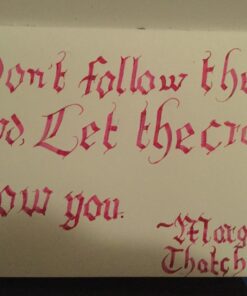 Don't follow the
wd, Let the cro
low you.
~Marg
Thatch